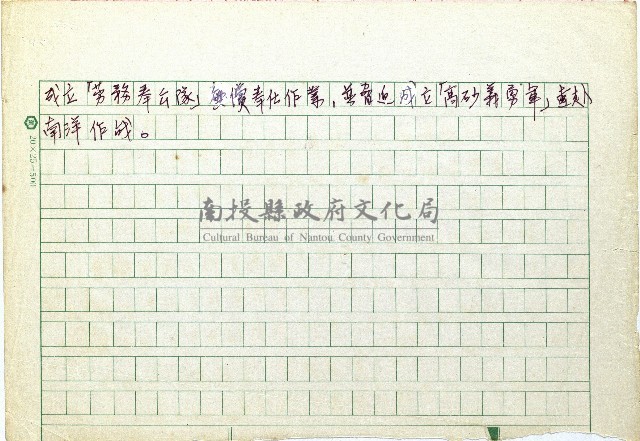 成立「劳務奉公隊」無償奉仕作業，並脅迫成立「高砂義勇軍」赴
南洋作战。
20×25=500
南投縣政府文化局
Cultural Bureau of Nantou County Government